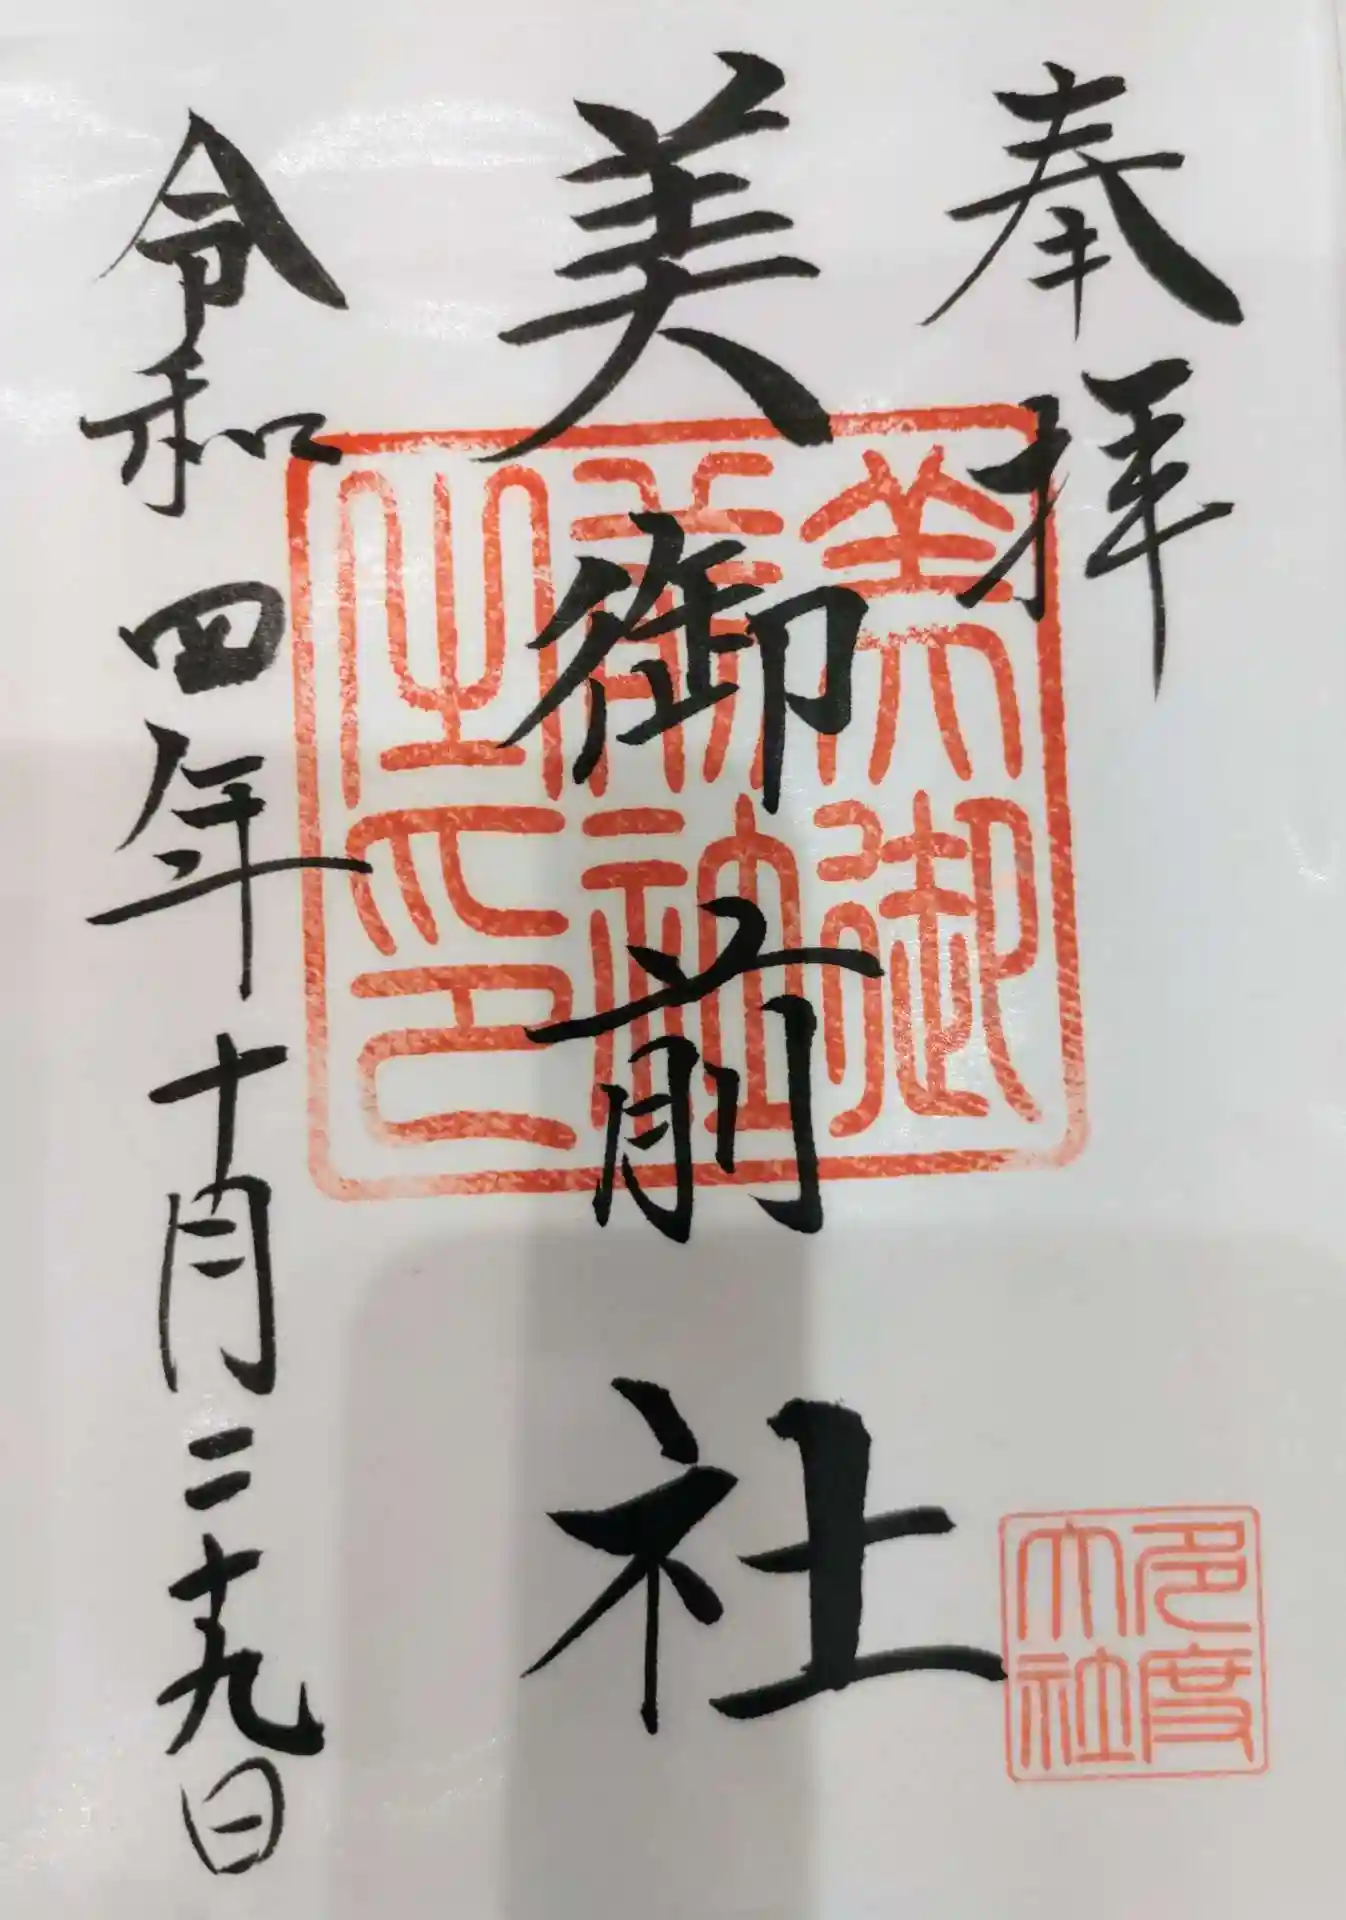 奉拝
美御前社
令和四年十月二十九日
美御前社之印
多度大社